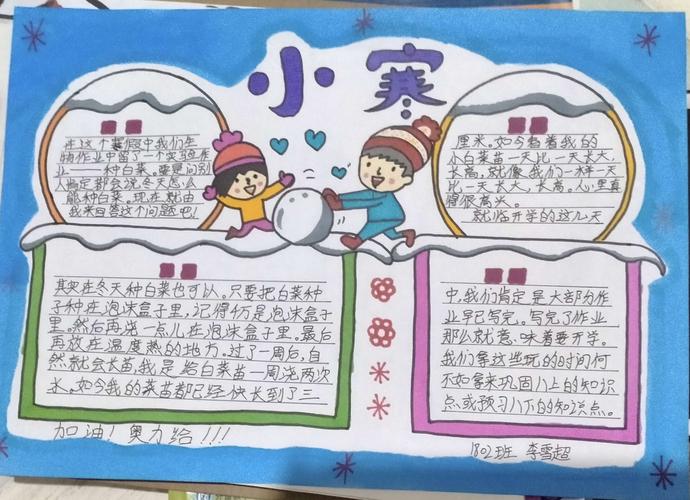 小寒
在这个寒假中我们生
物作业中留了一个实验作
业——种白菜。要是问别
人肯定都会说,冬天怎么
能种白菜。现在就由
我来回答这个问题吧!
其实在冬天种白菜也可以。只要把白菜种
子种在泡沫盒子里,记得千万是泡沫盒子
里。然后再浇一点儿在泡沫盒子里。最后
再放在温度热的地方。过了一周后,自
然就会长苗,我是给白菜苗一周浇两次
水。如今我的菜苗都已经快长到了三
厘米。如今看着我的
小白菜苗一天比一天长大,
长高,就像我们一样一天
比一天长大,长高。心里真
得很高兴。
就临开学的这几天
中,我们肯定是大部为作
业早已写完。写完了作业
那么就意味着要开学。
我们拿这些玩的时间何
不如拿来巩固八上的知识
点或预习八下的知识点。
加油!奥力给!!!
1802班 李雪超